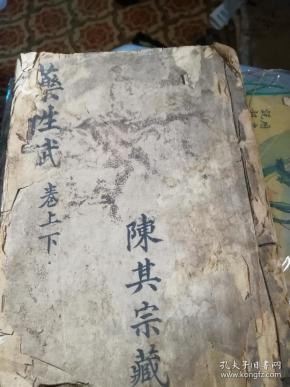 藥性武
卷上下
陳其宗藏
孔夫子旧书网